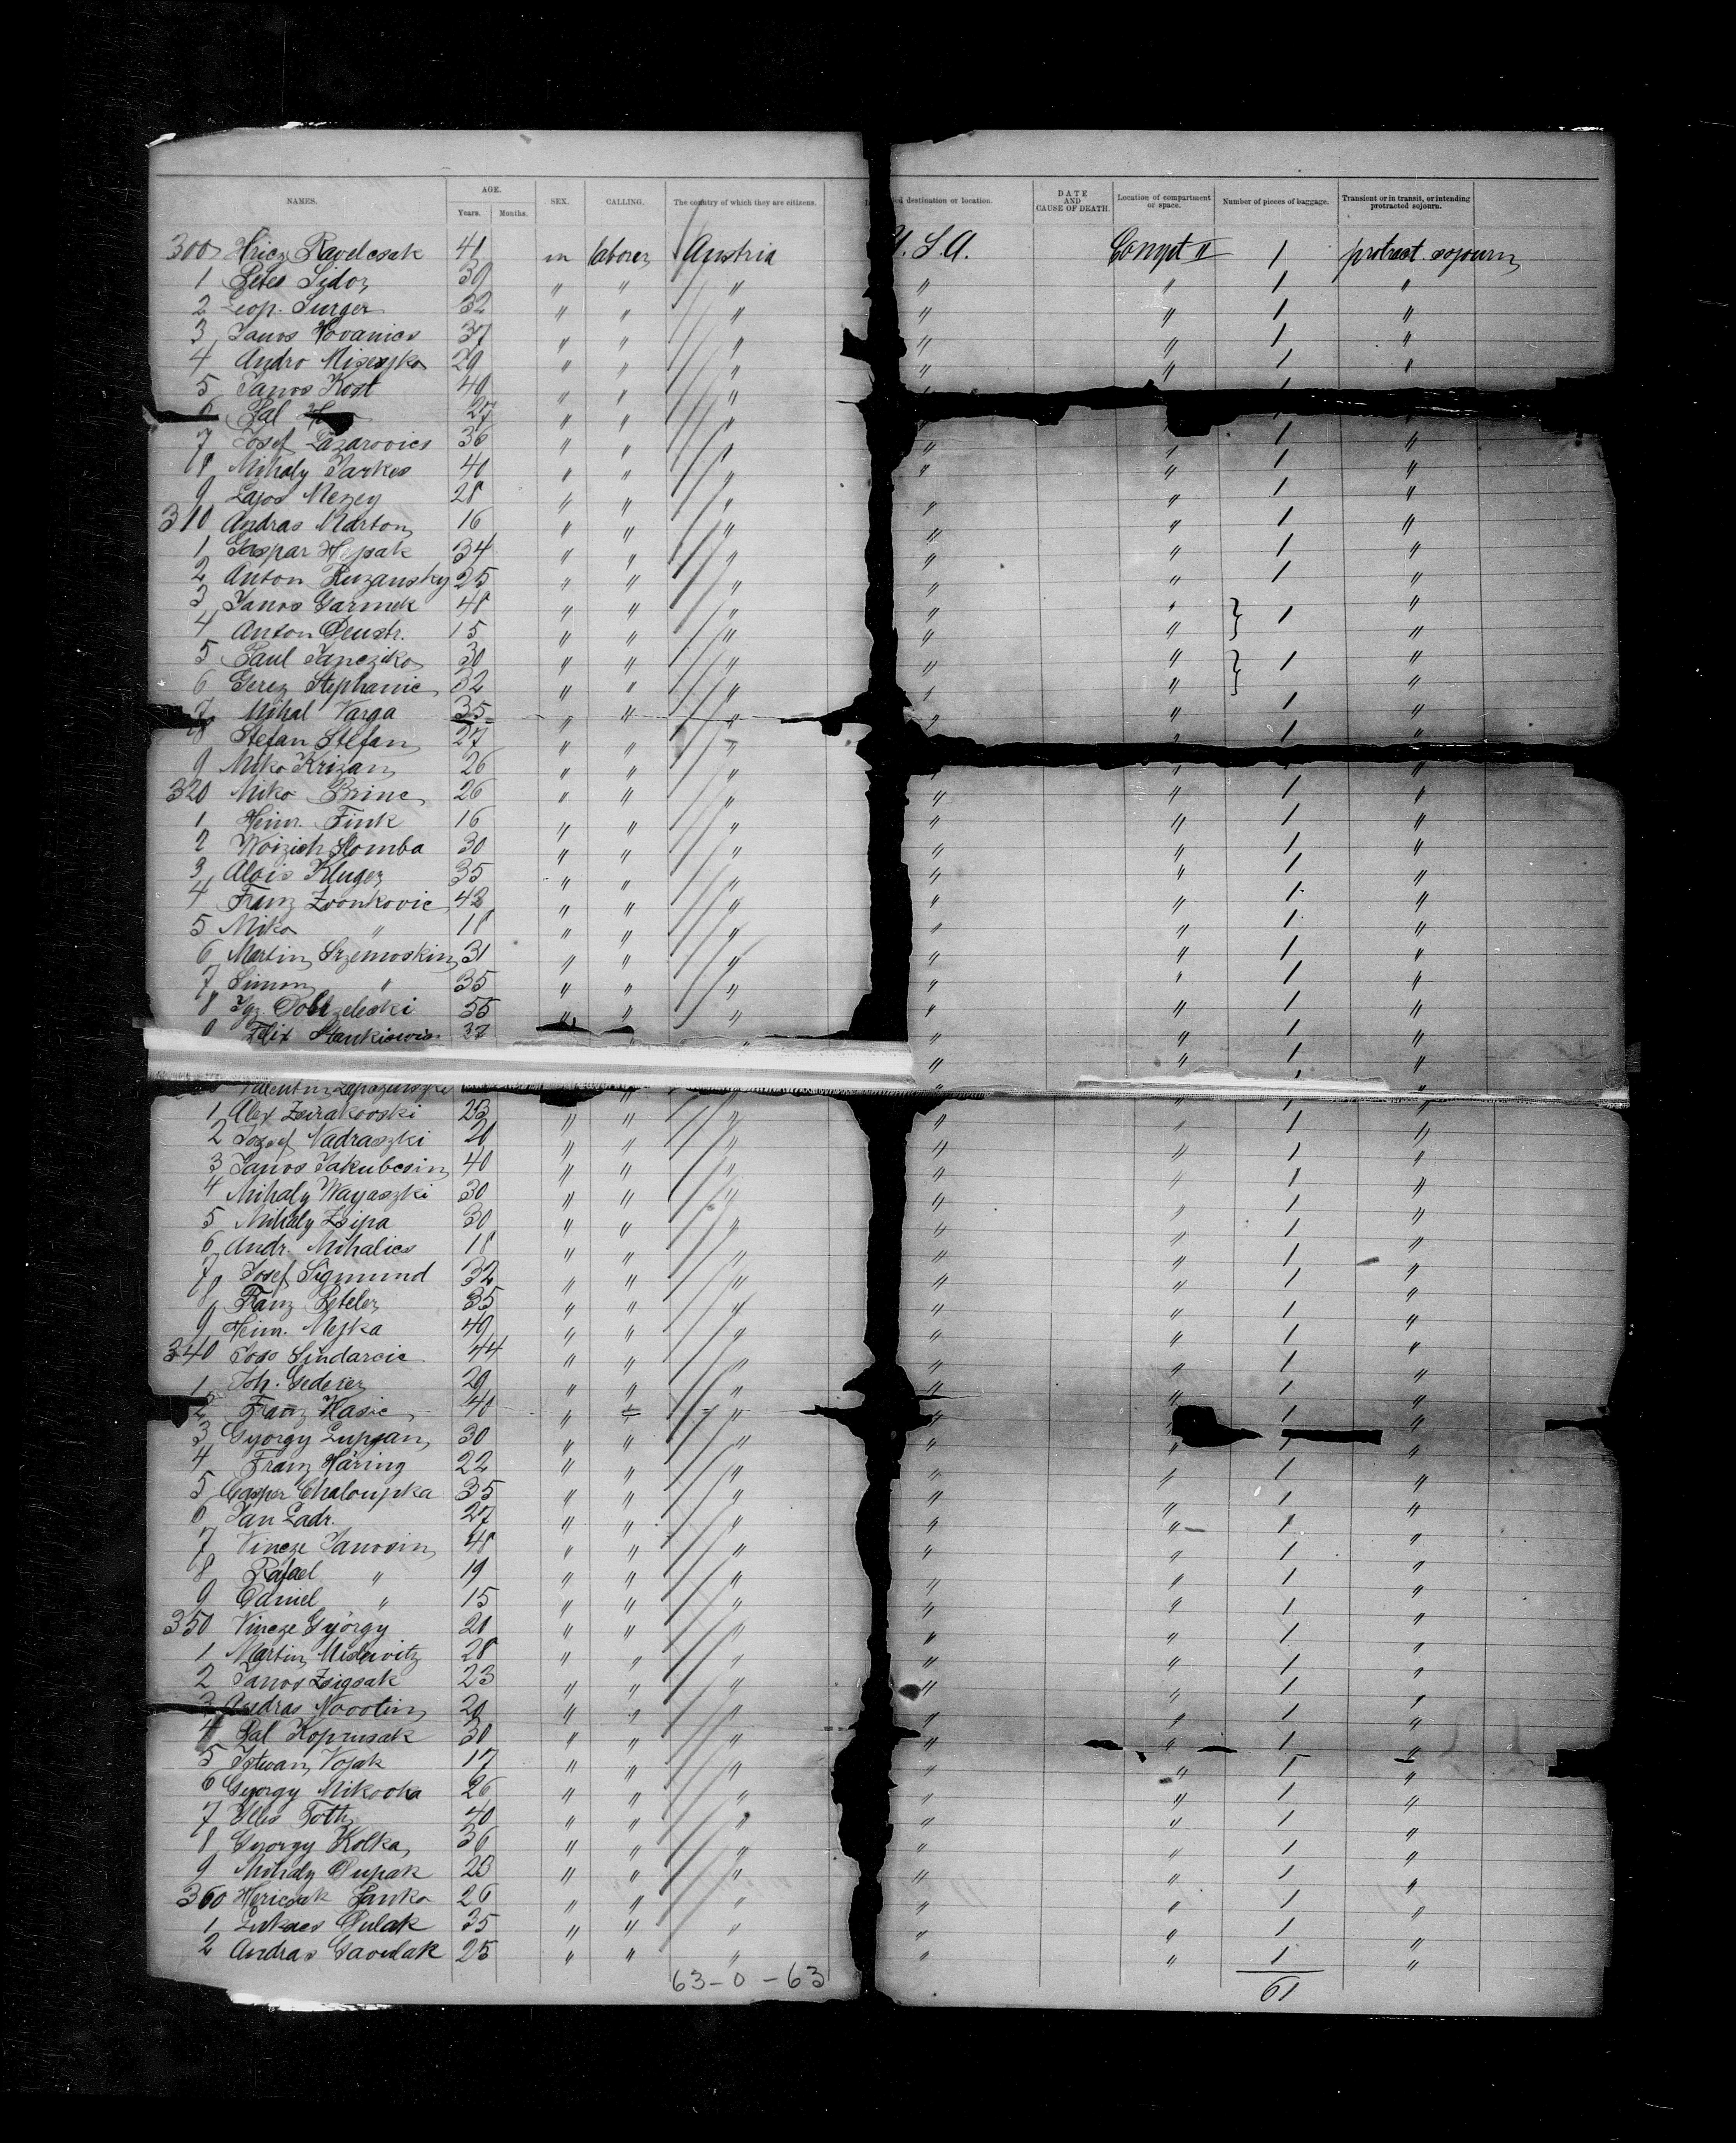 NAMES. AGE. Years. Months. SEX. CALLING. The country of which they are citizens. ed destination or location. DATE AND CAUSE OF DEATH. Location of compartment or space. Number of pieces of baggage. Transient or in transit, or intending protracted sojourn.
300 Hricz Pavelcsak 41 m laborer Austria U.S.A. Compt II 1 protract. sojourn
1 Peter Sidor 30 " " " " " 1 "
2 Leop. Surger 32 " " " " " 1 "
3 Janos Hovanics 37 " " " " " 1 "
4 Andro 29 " " " " " 1 "
5 Janos Kost 40 " " "
6 Pal 27 " " "
7 Josef Lazarovics 36 " " " " " 1 "
8 Mihaly Jarkes 40 " " " " " 1 "
9 Lajos Mezey 28 " " " " " 1 "
310 Andras Marton 16 " " " " " 1 "
1 Gaspar Hepak 34 " " " " " 1 "
2 Anton Ruzansky 25 " " " " " 1 "
3 Janos Garmek 48 " " " " " } 1 "
4 Anton 15 " " " " " "
5 Paul Japczko 30 " " " " " } 1 "
6 Gerez Stephanic 32 " " " " " "
7 Mihal Varga 35 " " " " " 1 "
8 Stefan Stefan 27 " " " " " 1 "
9 Miko Krizan 26 " " " " " 1 "
320 Miko Brinc 26 " " " " " 1 "
1 Heinr. Fink 16 " " " " " 1 "
2 Woizich Slomba 30 " " " " " 1 "
3 Alois Kluger 35 " " " " " 1 "
4 Franz Zvonkovic 42 " " " " " 1 "
5 Miko " 18 " " " " " 1 "
6 Martin Srzemoskin 31 " " " " " 1 "
7 Simon " 35 " " " " " 1 "
8 Igz. 55 " " " " " 1 "
9 Felix Stankiewicz 37 " " " " 1 "
Valentin
1 Alex Zsirakovski 23 " " " " " 1 "
2 Jozsef Nadraszki 20 " " " " " 1 "
3 Janos Jakubcsin 40 " " " " " 1 "
4 Mihaly Wayaszki 30 " " " " " 1 "
5 Mihaly Zsipa 30 " " " " " 1 "
6 Andr. Mihalics 18 " " " " " 1 "
7 Josef Sigmund 32 " " " " " 1 "
8 Franz Peteler 35 " " " " " 1 "
9 Heinr. Mejka 40 " " " " " 1 "
340 Joso Sindarcic 44 " " " " " 1 "
1 Joh. Gederer 29 " " " " " 1 "
2 Franz Hasic 40 " " " " " 1 "
3 Gyorgy Lupsan 30 " " " " " 1 "
4 Franz Häring 22 " " " " " 1 "
5 Casper Chaloupka 35 " " " " " 1 "
6 Jan Ladr. 27 " " " " " 1 "
7 Vincze Janosin 48 " " " " " 1 "
8 Rafael " 19 " " " " " 1 "
9 Daniel " 15 " " " " " 1 "
350 Vincze György 20 " " " " " 1 "
1 Martin 28 " " " " " 1 "
2 Janos Zsigsak 23 " " " " " 1 "
3 Andras Novotin 20 " " " " " 1 "
4 Pal Koprusak 30 " " " " " 1 "
5 Istwan Vojak 17 " " " " " 1 "
6 Gyorgy Mikooka 26 " " " " " 1 "
7 Illes Toth 40 " " " " " 1 "
8 Gyorgy Kolka 36 " " " " " 1 "
9 Mihaly Dupak 23 " " " " " 1 "
360 Hericsak Janko 26 " " " " " 1 "
1 Lukacs Dulak 35 " " " " " 1 "
2 Andras Gavulak 25 " " " " " 1 "
63-0-63 61